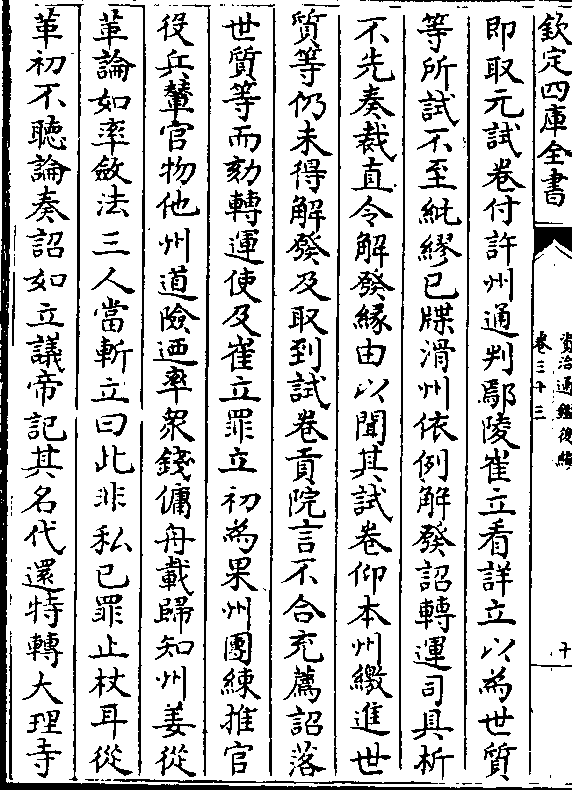 欽定四庫全書
資治通鑑後編
卷三十三
十
即取元試卷付許州通判鄢陵崔立看詳立以為世質
等所試不至紕繆已牒滑州依例解發詔轉運司具析
不先奏裁直令解發緣由以聞其試卷仰本州繳進世
質等仍未得解發及取到試卷貢院言不合充薦詔落
世質等而劾轉運使及崔立罪立初為果州團練推官
役兵輦官物他州道險迺率衆錢傭舟載歸知州姜從
革論如率斂法三人當斬立曰此非私已罪止杖耳從
革初不聽論奏詔如立議帝記其名代還特轉大理寺